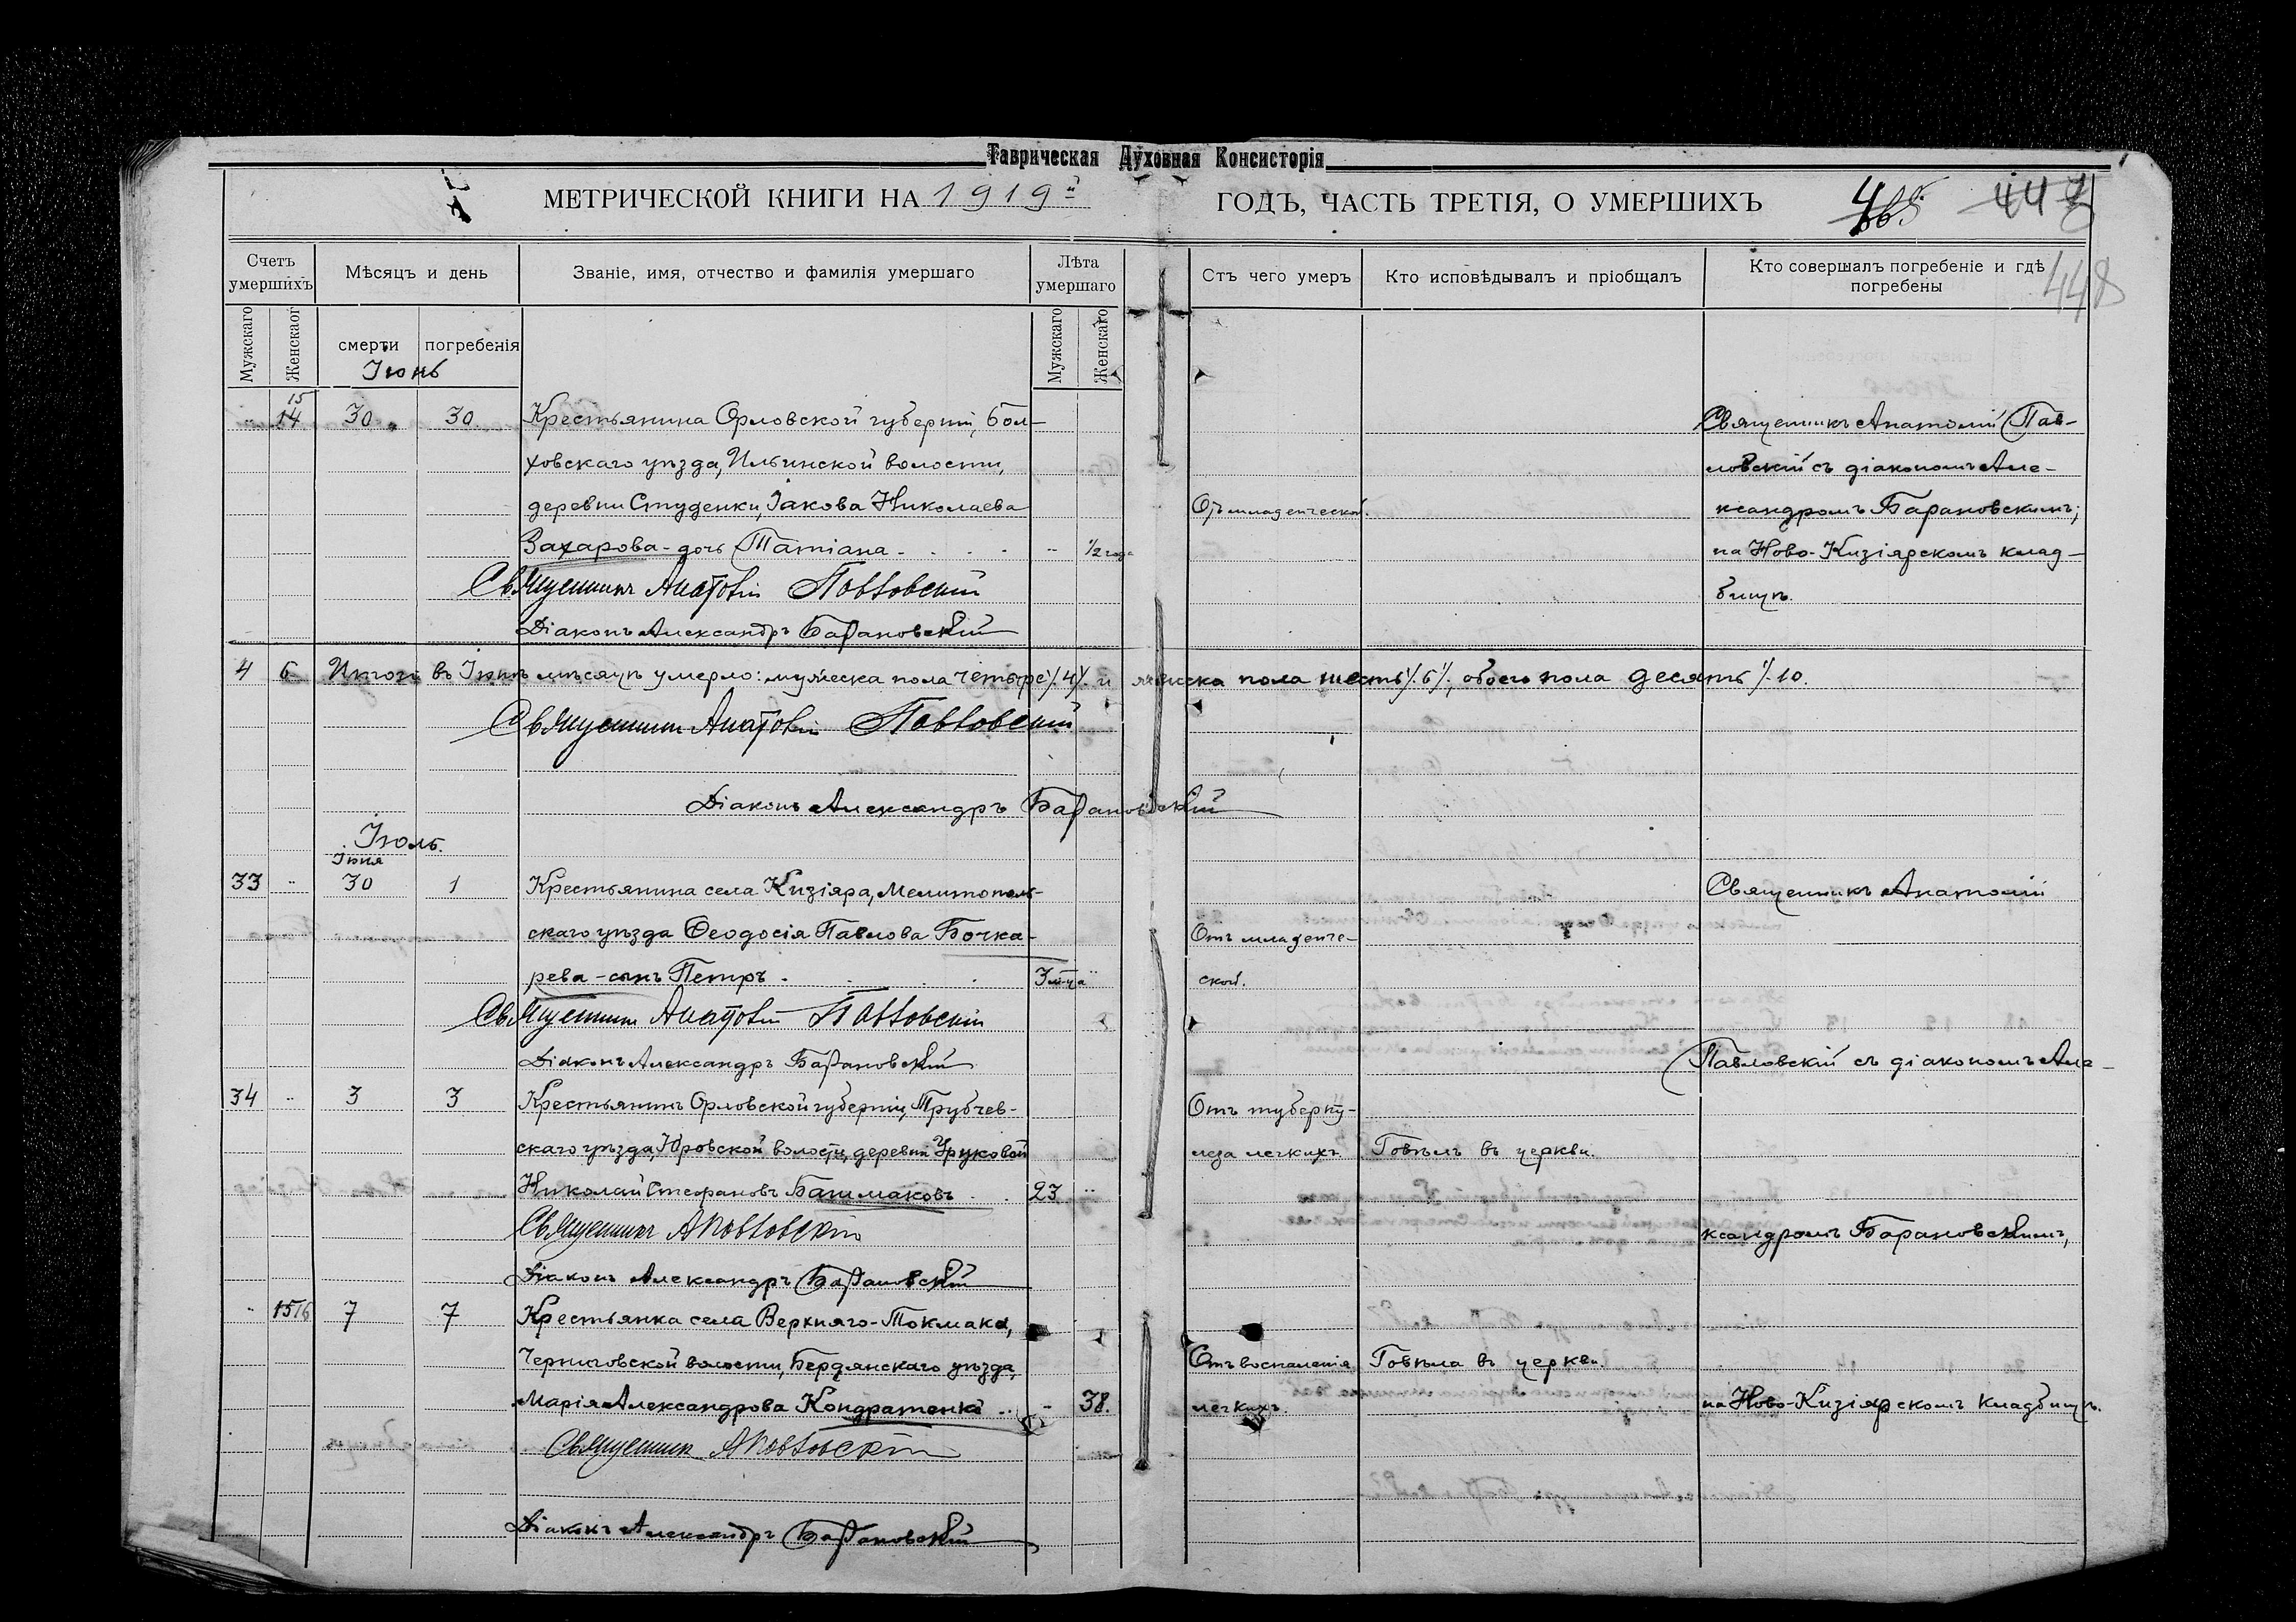 Таврическая Духовная Консисторія
МЕТРИЧЕСКОЙ КНИГИ НА 1919й ГОДЪ, ЧАСТЬ ТРЕТІЯ, О УМЕРШИХЪ
447
448
Счетъ умершихъ
Мѣсяцъ и день
Званіе, имя, отчество и фамилія умершаго
Лѣта умершаго
Отъ чего умеръ
Кто исповѣдывалъ и пріобщалъ
Кто совершалъ погребеніе и гдѣ погребены
Мужскаго
Женскаог
смерти
погребенія
Мужскаго
Женскаго
Іюнь
15
14 30 30
Крестьянина Орловской губерніи, Бол-
ховскаго уѣзда, Ильинской волости,
деревни Студенки, Іакова Николаева
Захарова - дочь Татіана - 1/2 года
Отъ младенческой.
Священникъ Анатолій Пав-
ловскій съ діакономъ Але-
ксандромъ Барановскимъ;
на Ново-Кизіярскомъ клад-
бищѣ.
Священникъ Анатолій Павловскій
Діаконъ Александръ Барановскій
4 6 Итого въ Іюнѣ мѣсяцѣ умерло: мужеска пола четыре /4/ и женска пола шесть /6/, обоего пола десять /10.
Священникъ Анатолій Павловскій
Діаконъ Александръ Барановскій
Іюль.
Іюня
33 30 1
Крестьянина села Кизіяра, Мелитополь-
скаго уѣзда Ѳеодосія Павлова Бочка-
рева - сынъ Петръ. 3 м-ца
Отъ младенче-
ской.
Священникъ Анатолій
Священникъ Анатолій Павловскій
Діаконъ Александръ Барановскій
Павловскій съ діакономъ Але-
34 3 3
Крестьянинъ Орловской губерніи, Трубчев-
скаго уѣзда, Юровской волости, деревни
Николай Стефановъ Башмаковъ 23
Отъ туберку-
леза легкихъ.
Говѣлъ въ церкви.
Священникъ А Павловскій
ксандромъ Барановскимъ,
Діаконъ Александръ Барановскій
15 16 7 7
Крестьянка села Верхняго-Токмака,
Черниговской волости, Бердянскаго уѣзда,
Марія Александрова Кондратенко - 38.
Отъ воспаленія
легкихъ.
Говѣла въ церкви.
на Ново-Кизіярскомъ кладбищѣ.
Священникъ А Павловскій
Діаконъ Александръ Барановскій